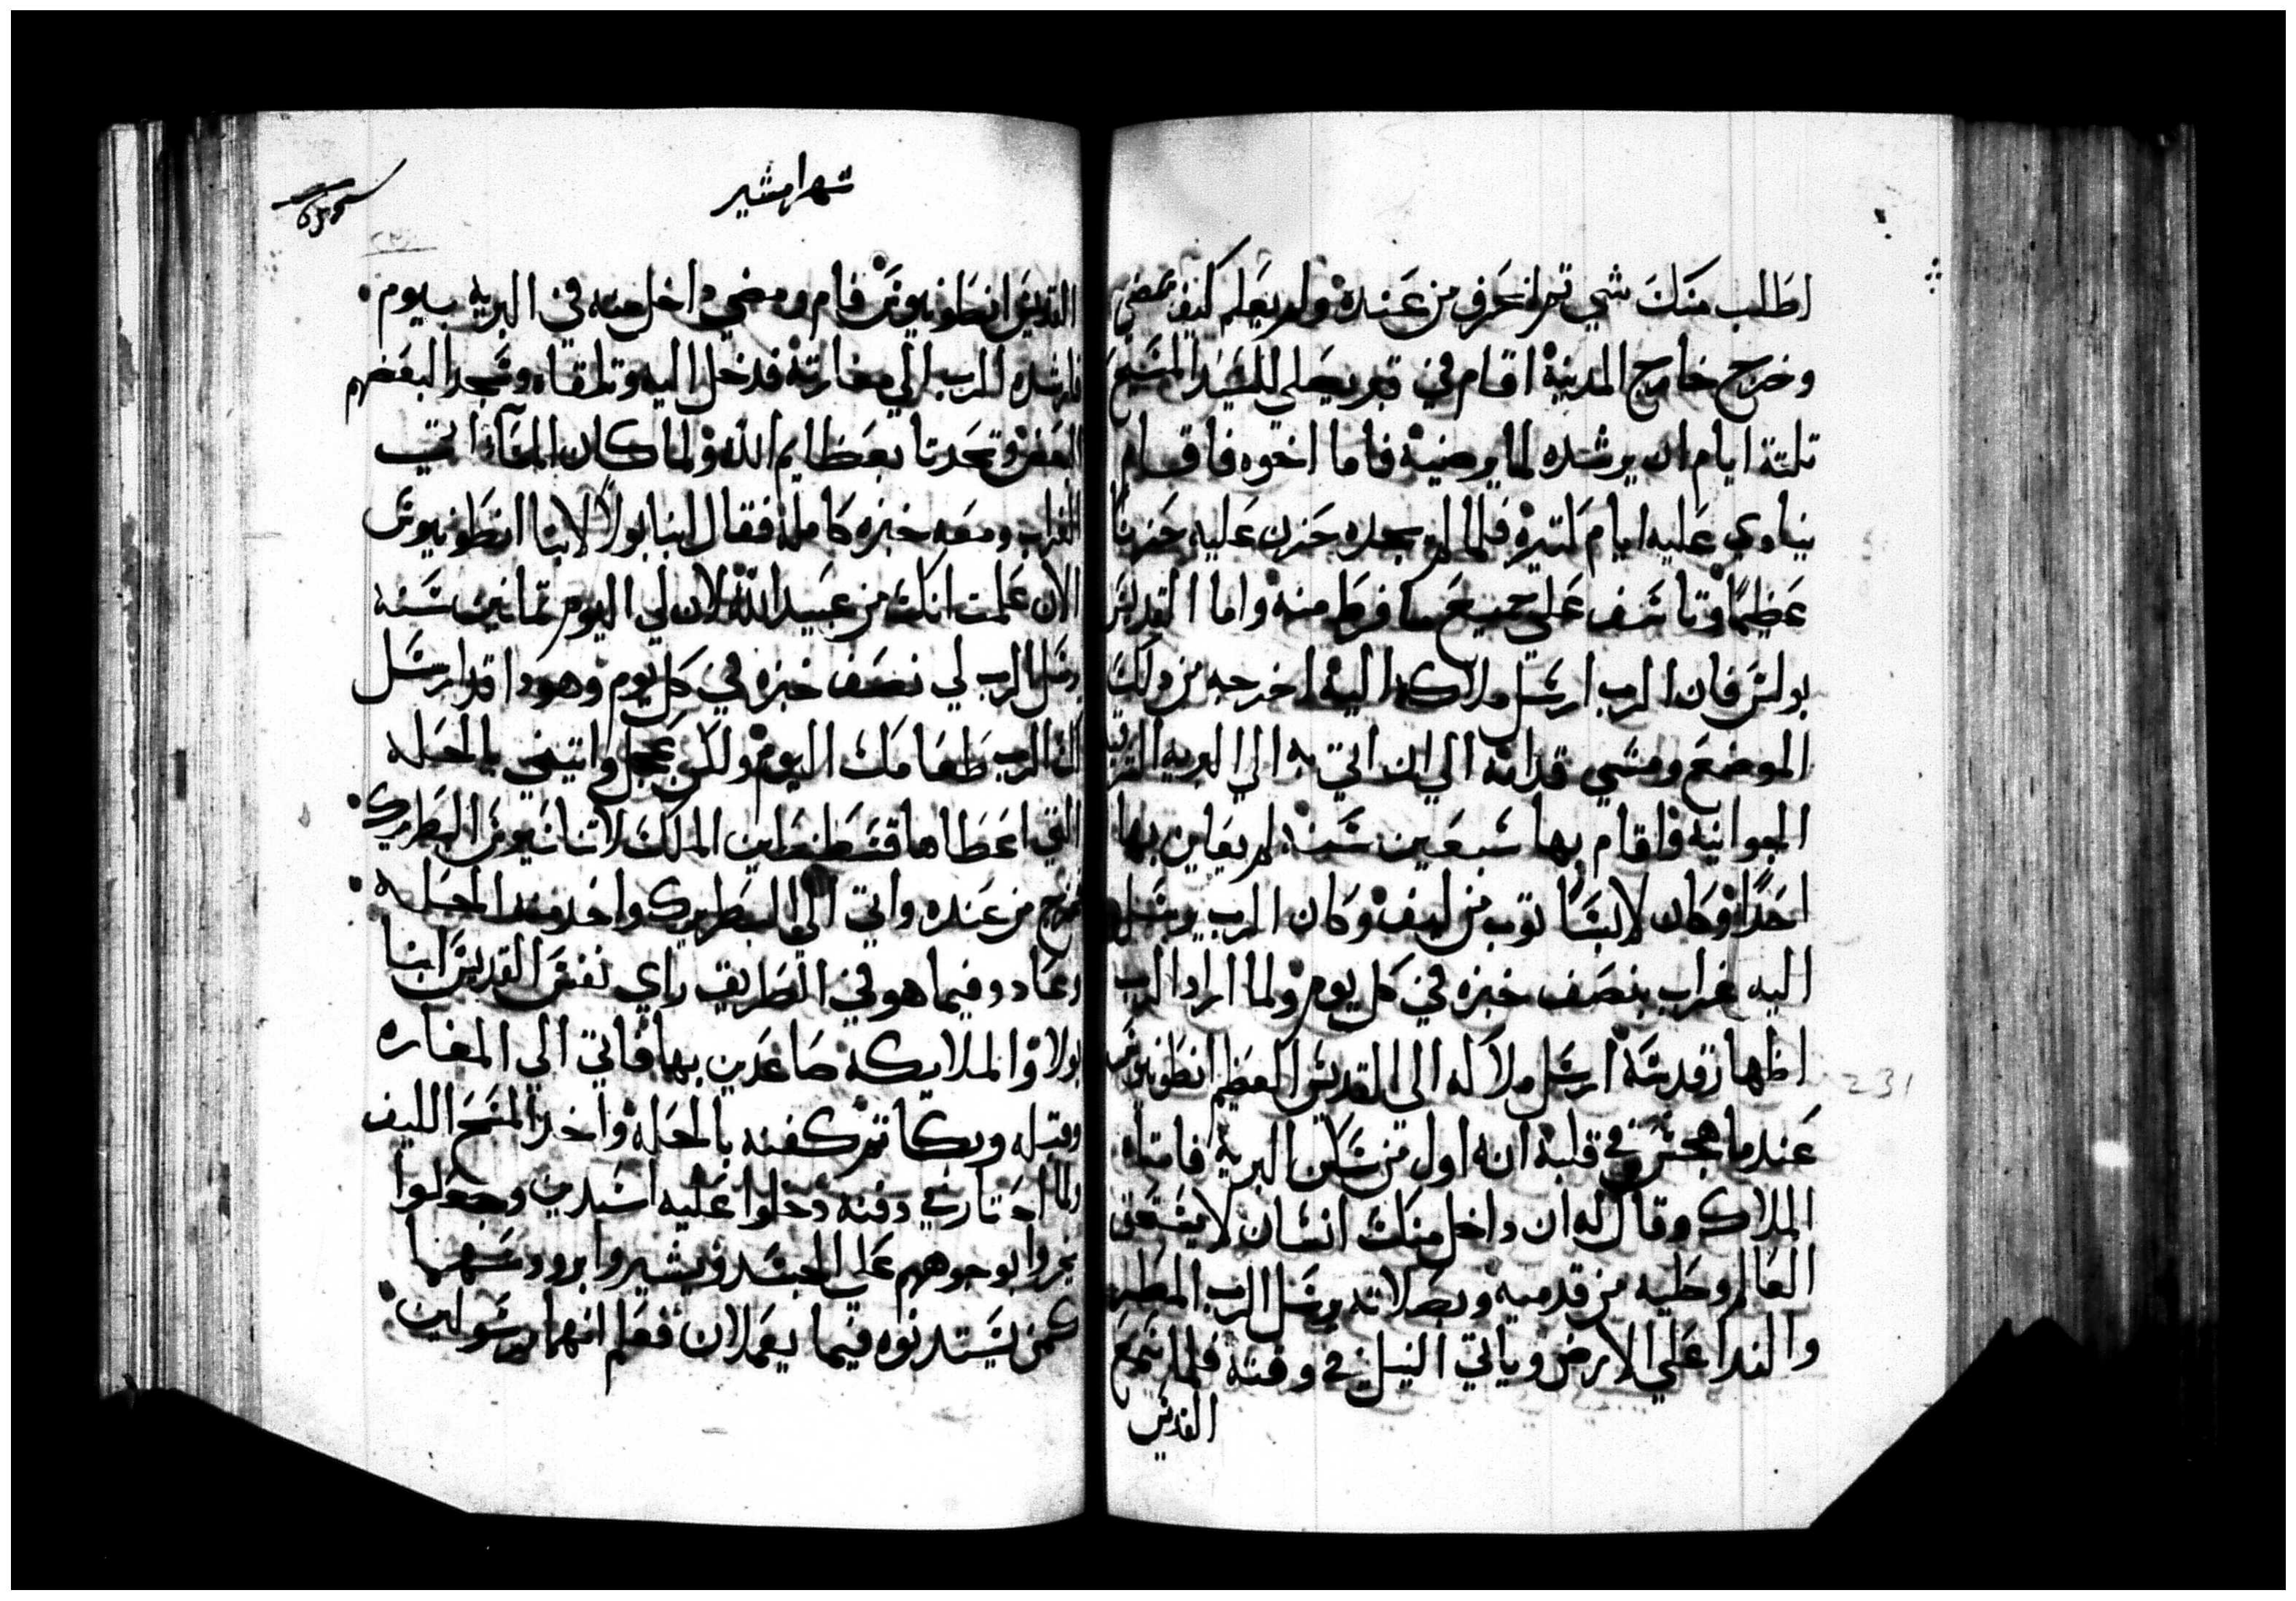 اطلب منك شي تم انحرف من عنده ولم يعلم كيف مضي
وخرج خارج المدينة اقام في قبر يصلي للسيد المسيح
تلتة ايام ان يرشده لما يرضيه فاما اخوه فاقام
يناوي عليه ايام كتيره فلما لم يجده حزن عليه حزنا
عظيما وتاسف علي جميع ما فرط منه واما القديس
بولس فان الرب ارسل ملاكه اليه اخرجه من دلك
الموضع ومشي قدامه الي ان اتي به الي البريه الشرقيه
الجوانيه واقام بها سبعين سنه لم يعاين بها
احدا وكان لابسا توب من ليف وكان الرب يرسل
اليه غراب بنصف خبزه في كل يوم ولما اراد الرب
اظهار قدسه ارسل ملاكه الي القديس العظيم انطونيوس
عندما هجس في قلبه انه اول من سكن البريه فاتاه
الملاك وقال له ان داخل منك انسان لا يستحق
العالم وطيه من قدميه وبصلاته يرسل الرب المطر
والندا علي الارض وياتي النيل في وقته فلما سمع
القديس
شهر امشير
القديس انطونيوس قام ومضي داخل منه في البريه بيوم
فارشده الرب الي مغارته فدخل اليه وتلقاه وسجد البعضهم
البعض وتحدتا بعظايم الله ولما كان المسآ اتي
الغراب ومعه خبزه كامله فقال انبا بولا لانبا انطونيوس
الان علمت انك من عبيد الله لان لي اليوم تمانين سنه
يرسل الرب لي نصف خبزه في كل يوم وهودا قد ارسل
لك الرب طعامك اليوم ولكن عجل واتيني بالحله
التي اعطاها قسطنطين الملك لاتناسيوس البطريرك
فخرج من عنده واتي الي البطريرك واخد منه الحله
وعاد وفيما هو في الطريق راي نفس القديس انبا
بولا والملايكه صاعدين بها فاتي الي المغاره
وقبله وبكا تم كفنه بالحله واخد المسح الليف
ولما احتار في دفنه دخلوا عليه اسدين وجعلوا
يمروا بوجوههم علي الجسد ويشيروا برودسهما
كمن يستدنوه فيما يعملان فعلم انهما مرسولين